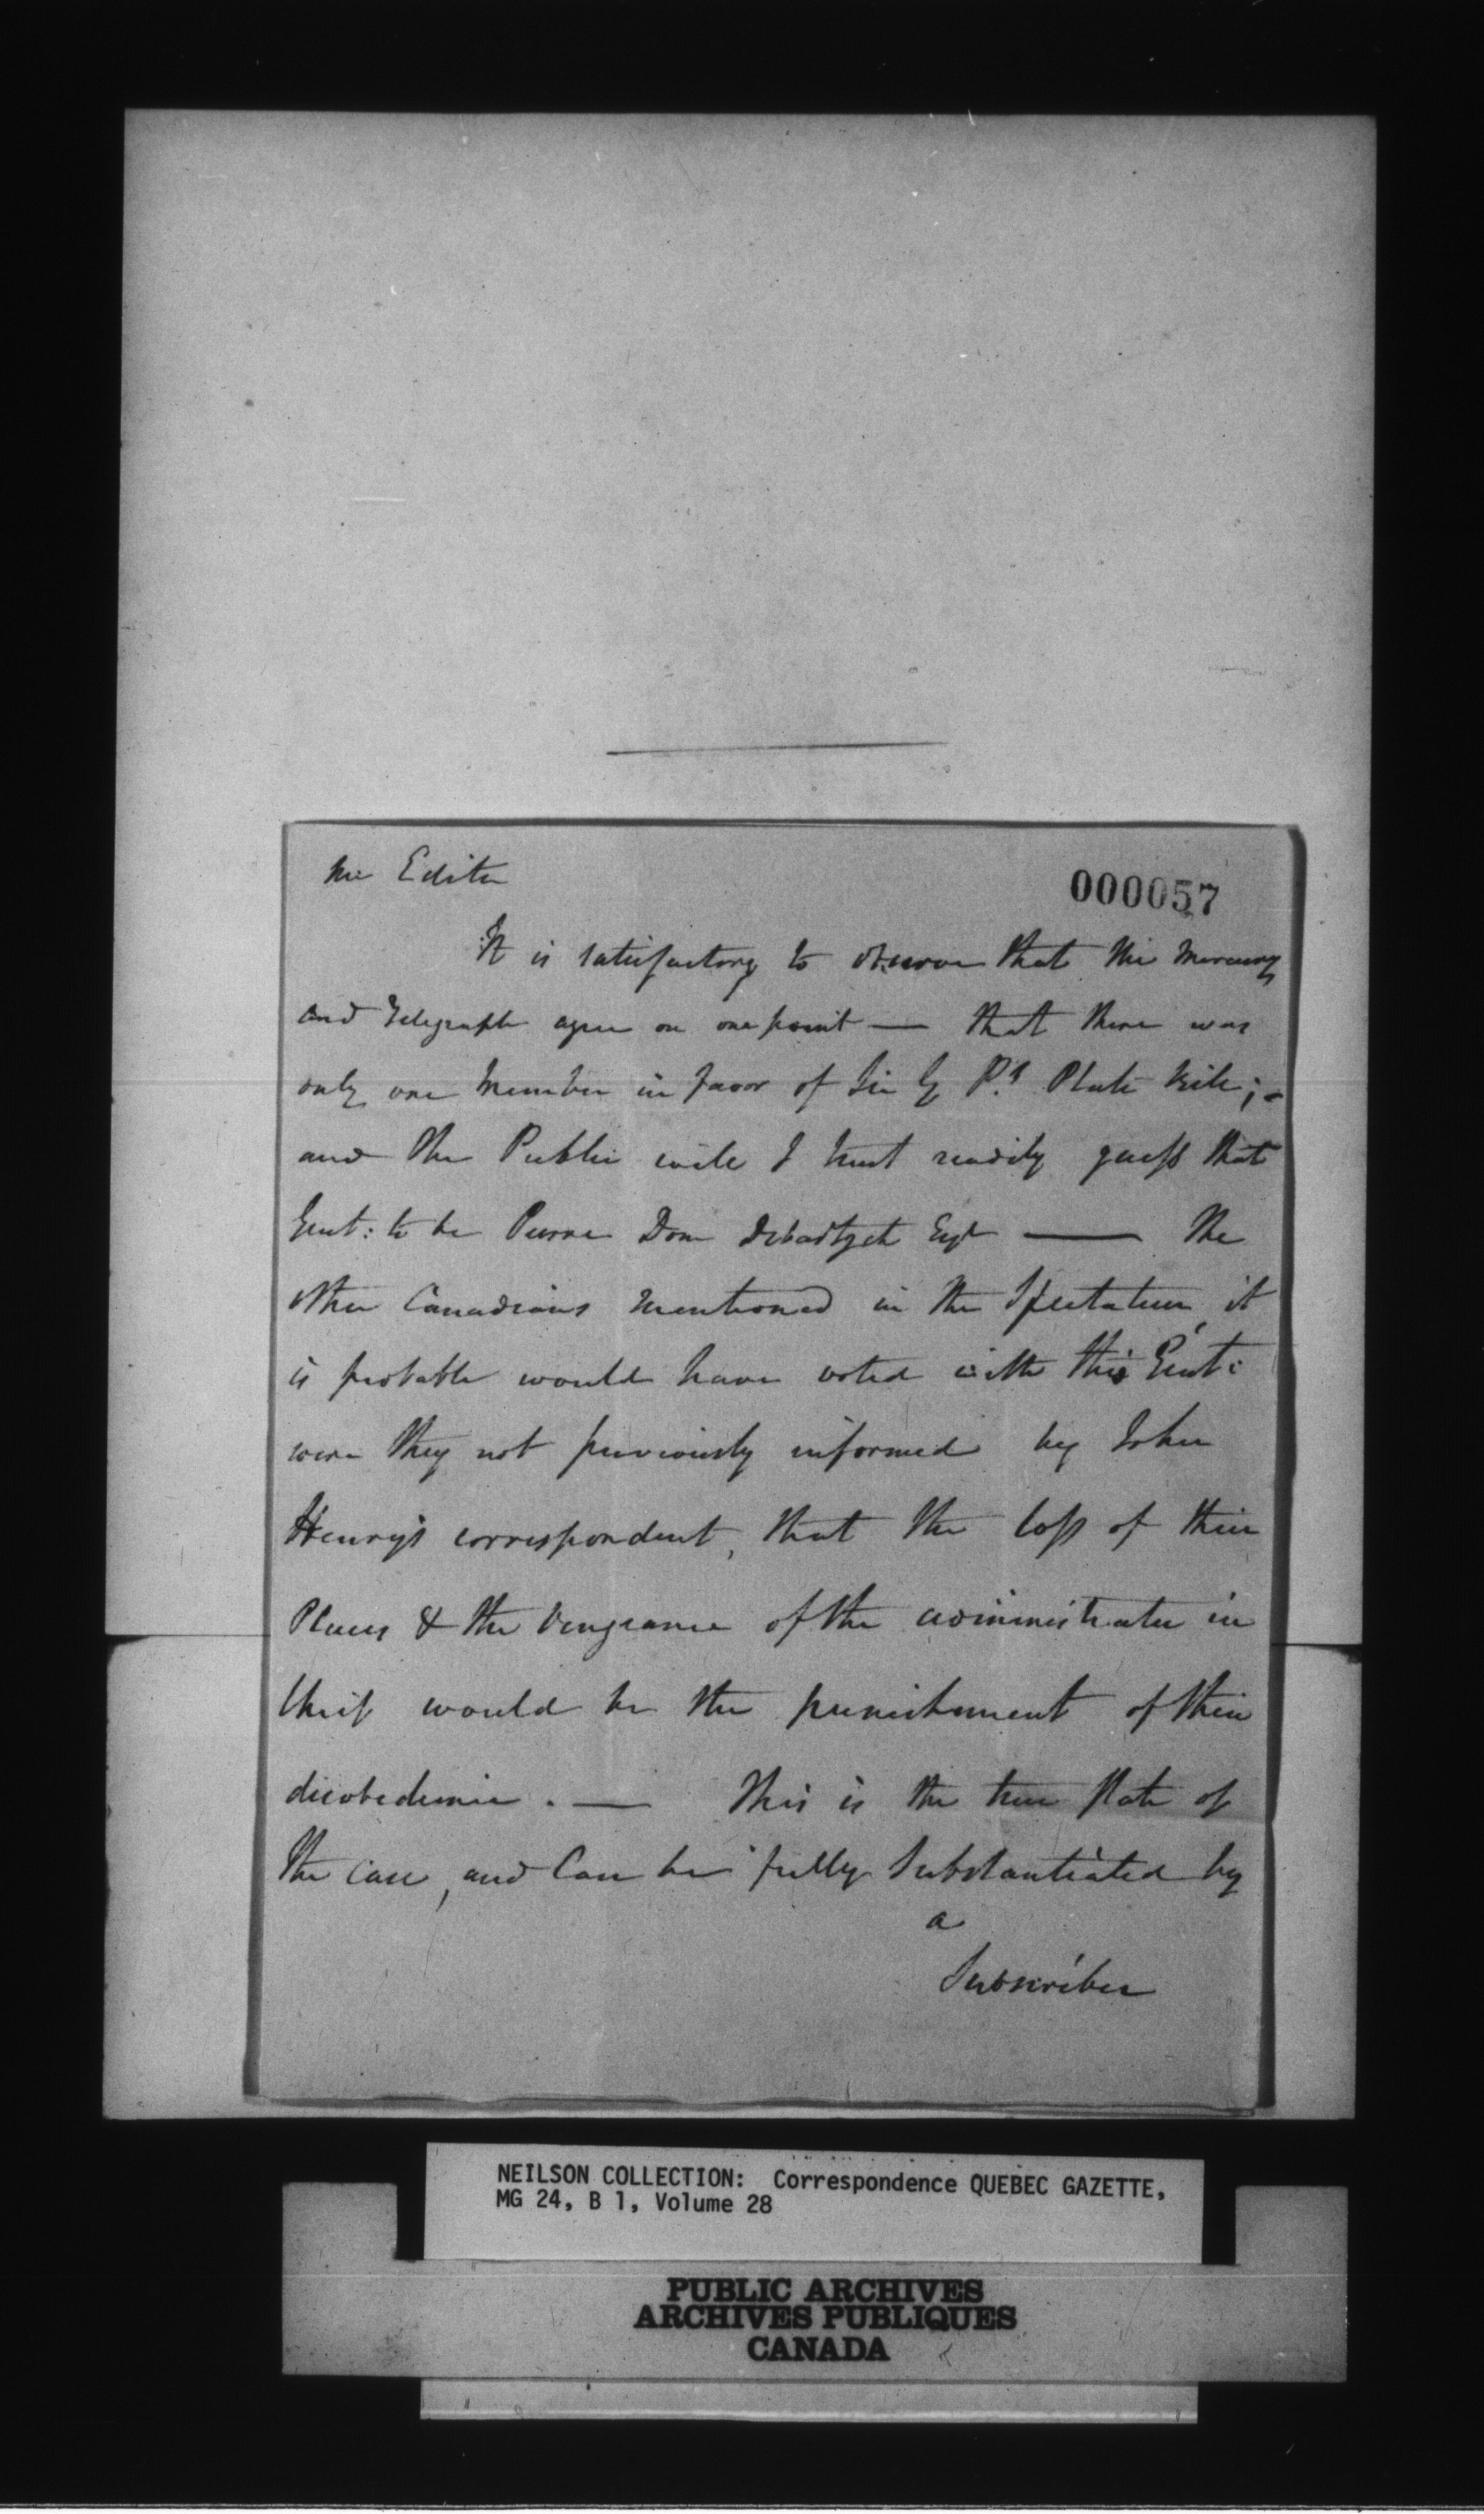 Mr Editor
000057
It is satisfactory to observe that the Mercury
and Telegraph agree on one point — that there was
only one Member in favor of Sir G P.s Plate Bill; -
and the Public will I trust readily guess that
Gent: to be Pierre Dom Debartzch Esqr — The
other Canadians mentioned in the Spectateur, it
is probable would have voted with this Gent:
were they not previously informed by John
Henry's correspondent, that the loss of their
Places & the Vengeance of the administrator in
chief would be the punishment of their
disobedience. — This is the true state of
the case, and Can be fully Substantiated by
a
Subscriber
NEILSON COLLECTION: Correspondence QUEBEC GAZETTE,
MG 24, B 1, Volume 28
PUBLIC ARCHIVES
ARCHIVES PUBLIQUES
CANADA